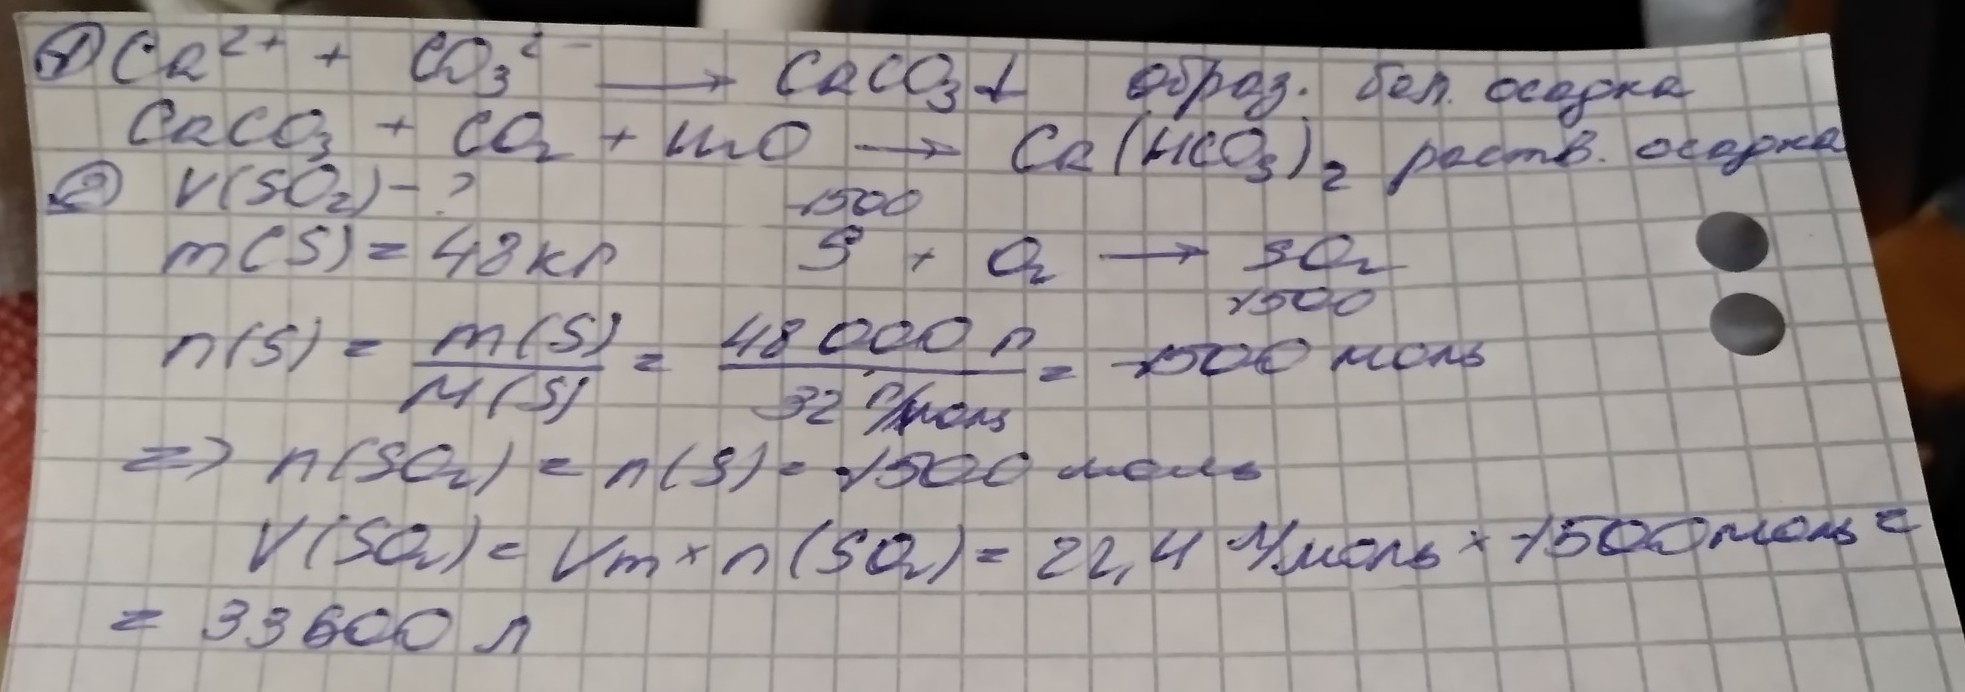 1) Ca²⁺ + CO₃²⁻ → CaCO₃↓ образ. бел. осадка
CaCO₃ + CO₂ + H₂O → Ca(HCO₃)₂ раств. осадка
2) V(SO₂) - ?
1500
m(S) = 48 кг S + O₂ → SO₂
1500
n(S) = m(S)/M(S) = 48 000 г/32 г/моль = 1500 моль
=> n(SO₂) = n(S) = 1500 моль
V(SO₂) = Vm × n(SO₂) = 22,4 л/моль × 1500 моль =
= 33600 л